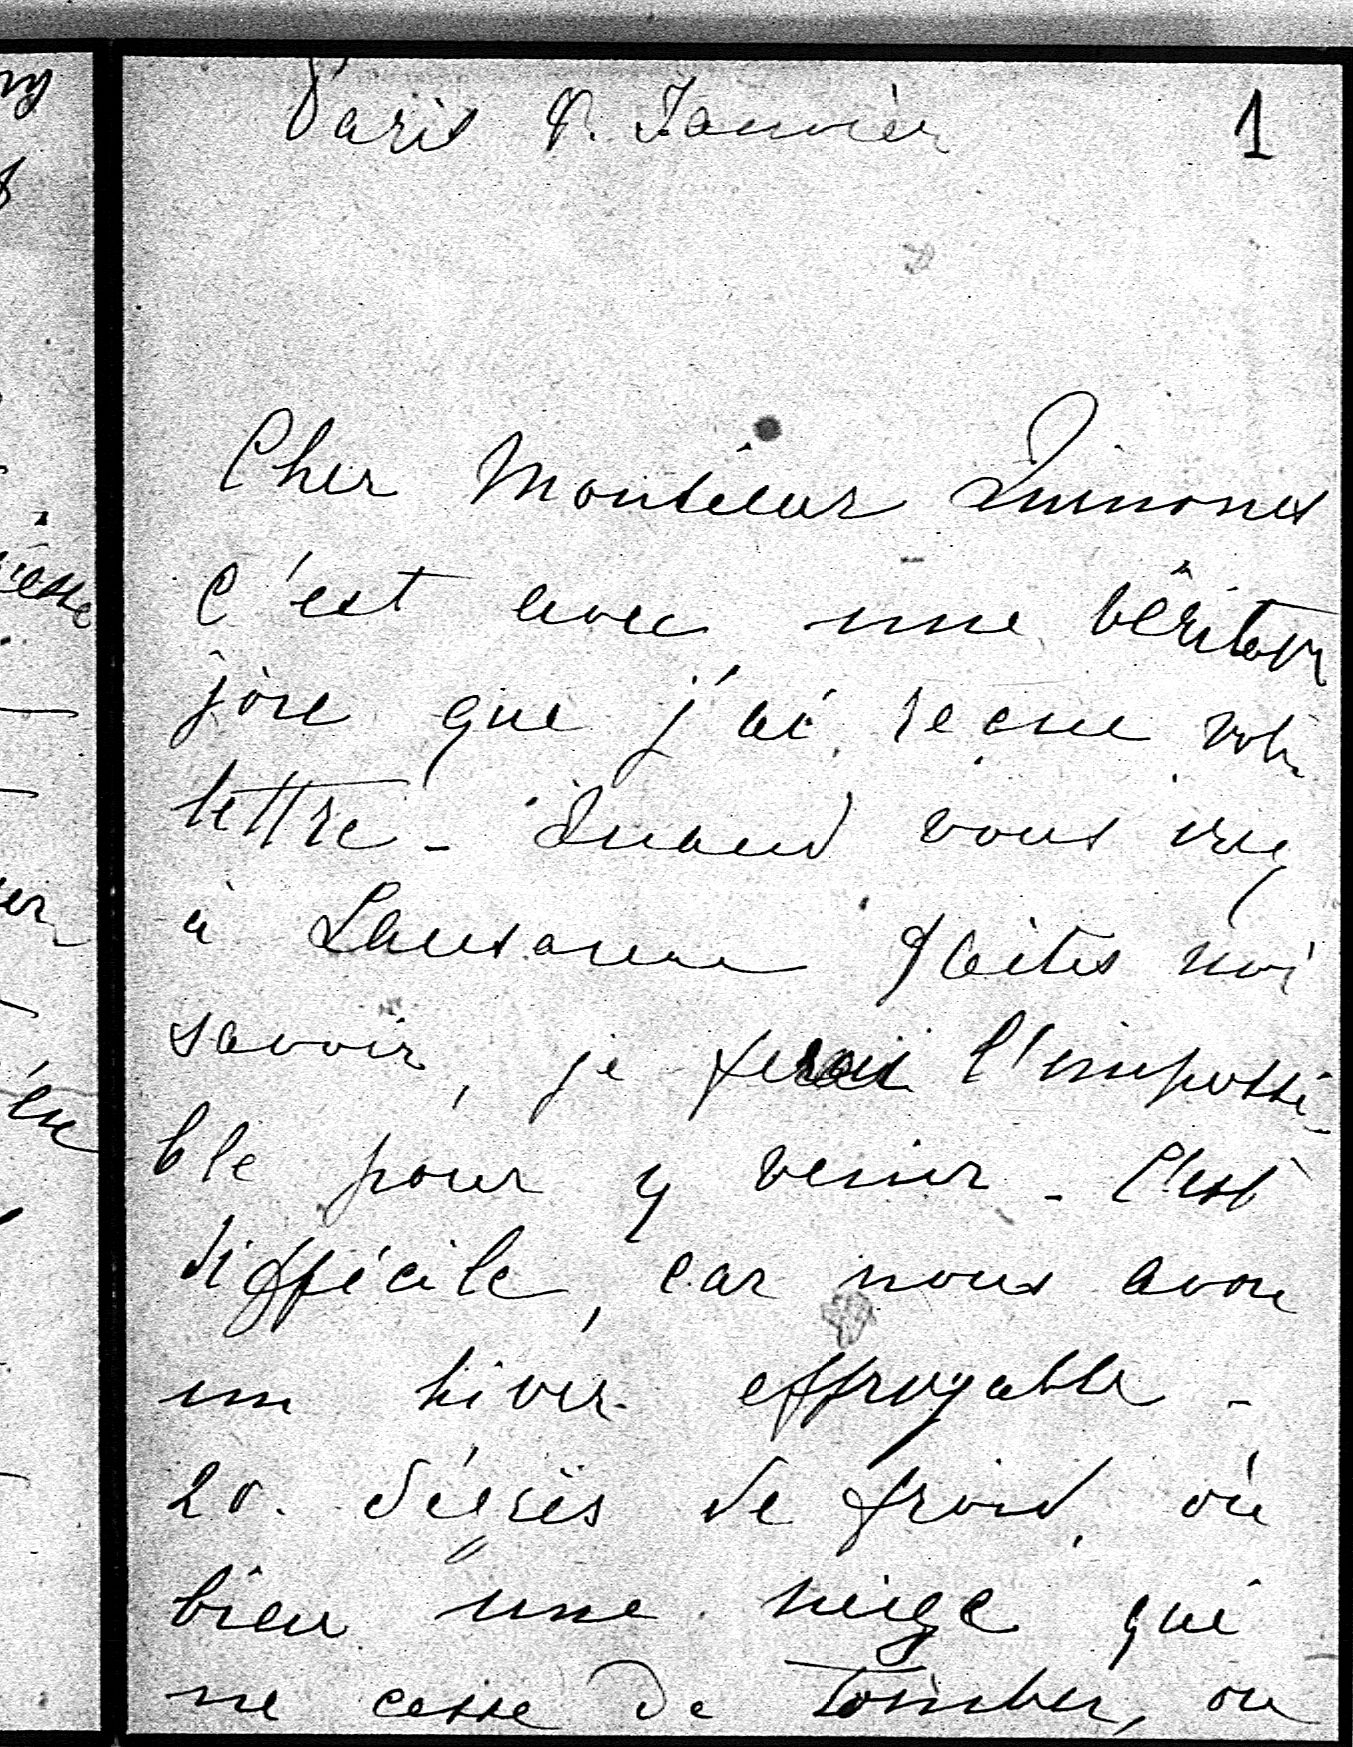 Paris 8. Janvier
1
Cher Monsieur Quinones
C'est avec une véritabl
joie que j'ai recue votre
lettre - Quand vous irez
à Lausanne faites moi
savoir, je ferai l'impossi-
ble pour y venir - C'est
difficile, car nous avons
un hiver effroyable -
20. dégrès de froid, où
bien une neige qui
ne cesse de tomber, ou